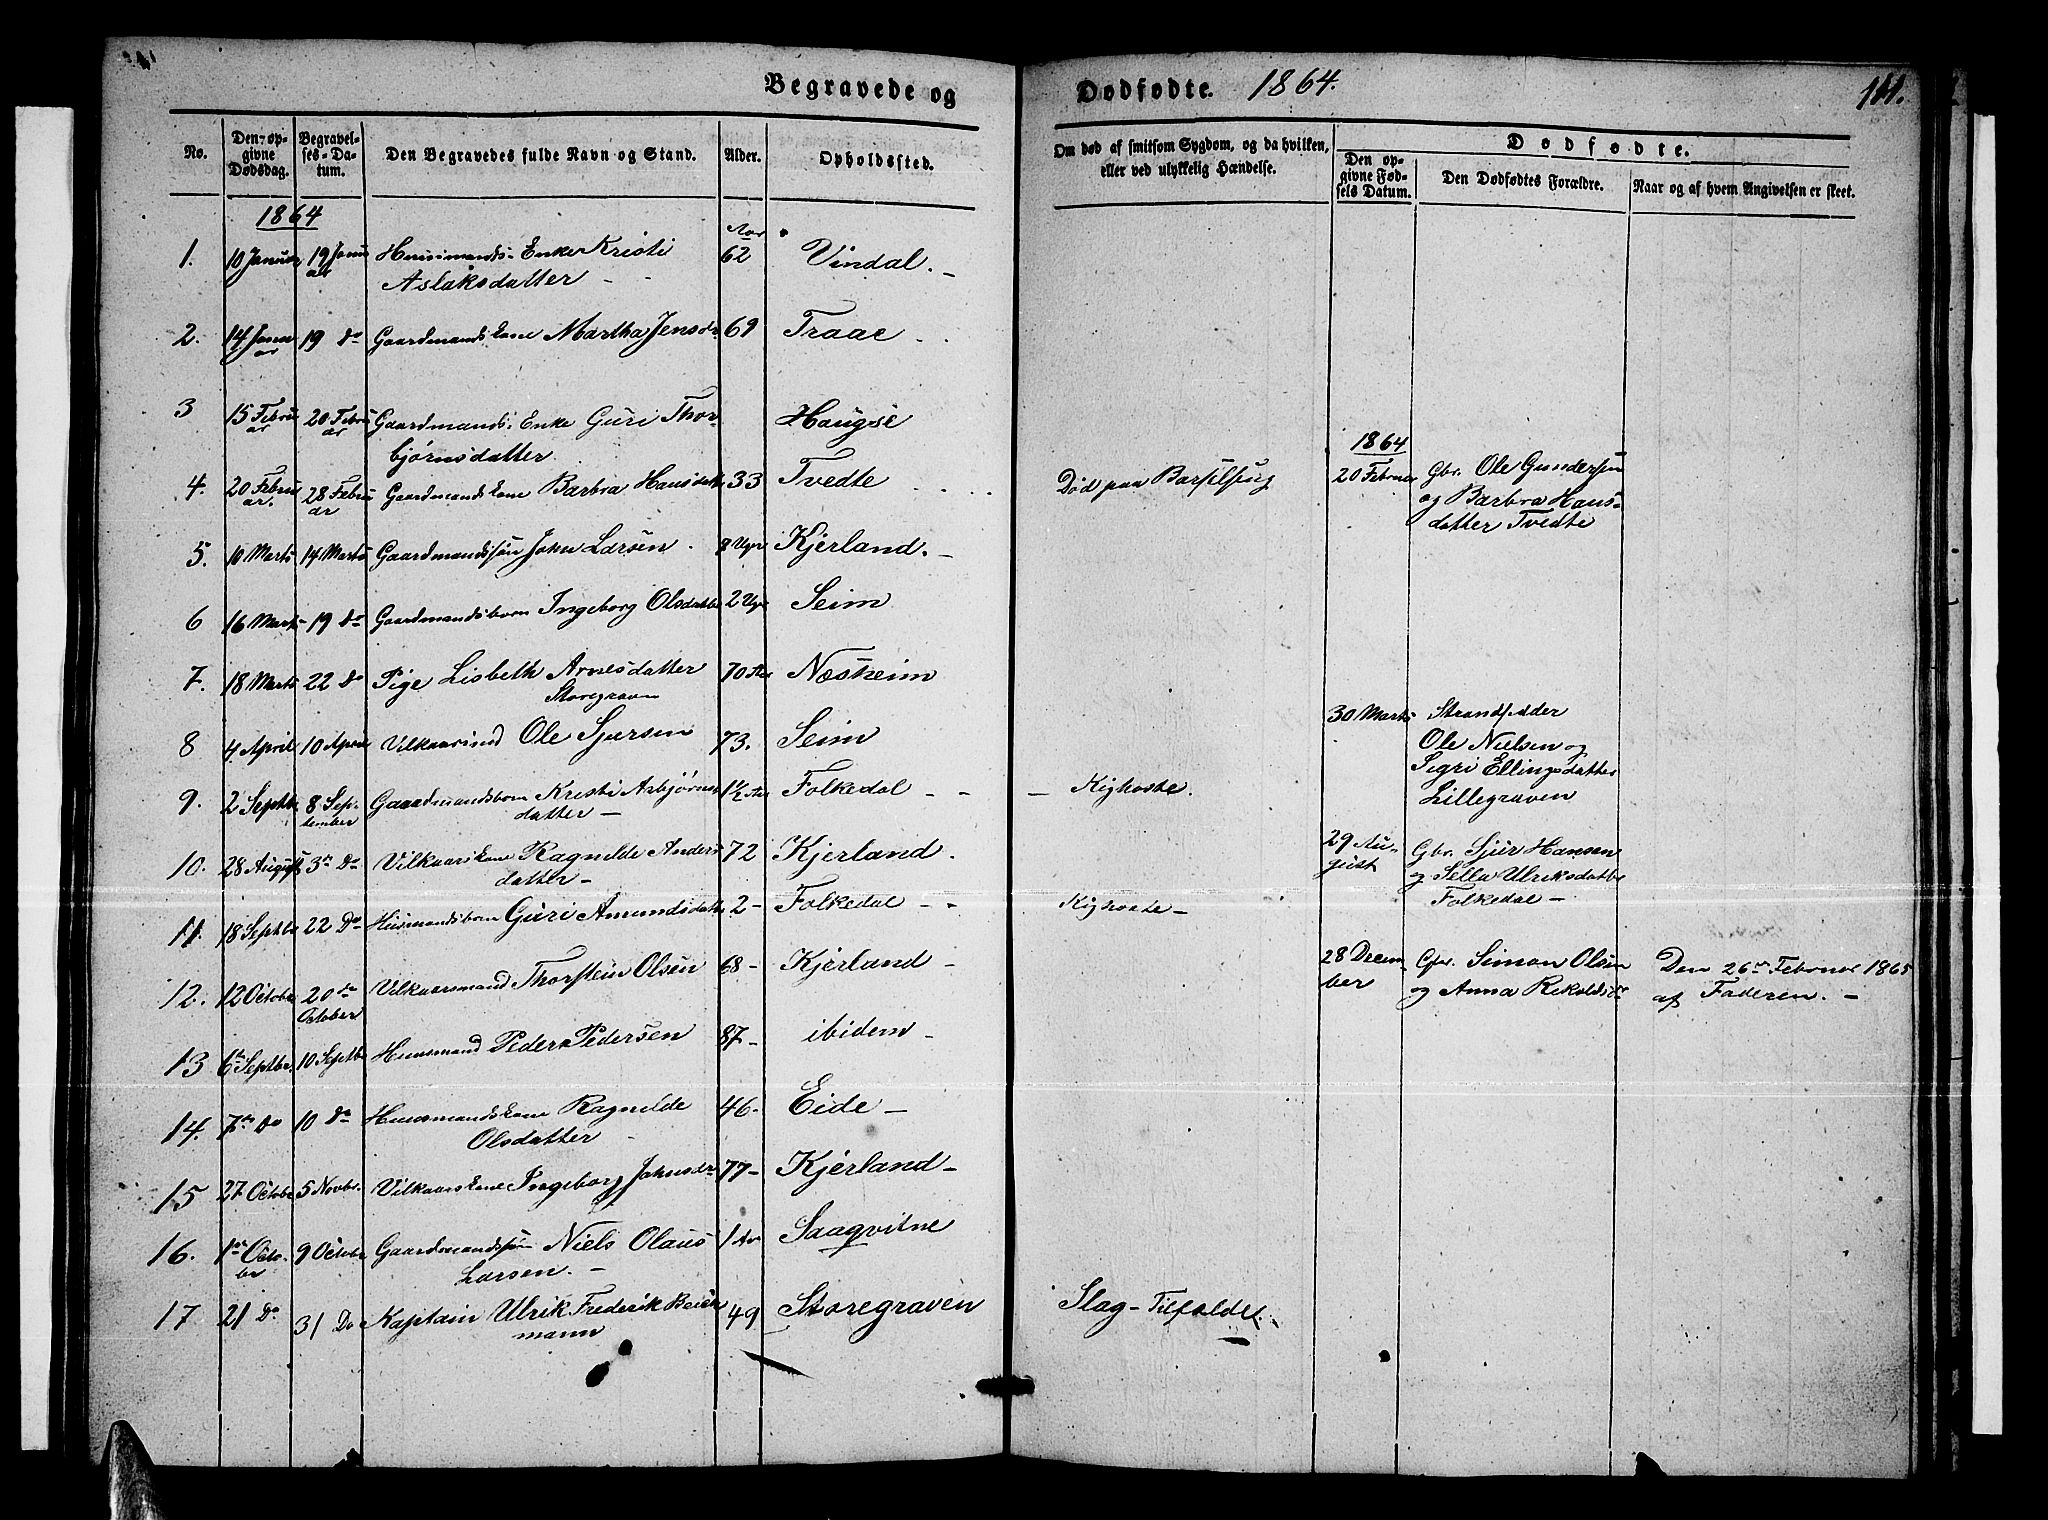 Begravede og Dødfødte. 1864. 111.
No. Den opgivne Dødsdag. Begravelses-Datum. Den Begravedes fulde Navn og Stand. Alder. Opholdssted. Om død af smitsom Sygdom, og da hvilken, eller ved ulykkelig Hændelse. Dødfødte.
Den opgivne Fødsels Datum. Den Dødfødtes Forældre. Naar og af hvem Angivelsen er skeet.
1864
Aar
1. 10 Januar 19 Januar Huusmands-Enke Kristi 62 Vindal. -
Aslaksdatter -
2. 14 Januar 19 do Gaardmandskone Martha Jensdr 69 Traae
3 15 Februar 20 Februar Gaardmands-Enke Guri Thor- Haugse
bjørnsdatter
1864
4. 20 Februar. 28 Februar Gaardmandskone Barbra Hansdatter 33 Tvedte Død paa Barselseng 20 Februar Gbr. Ole Gundersen
og Barbra Hans-
datter Tvedte
5. 10 Marts 14 Marts Gaardmandssøn John Larsen 8 Uger Kjerland. -
6 16 Marts 19 do Gaardmandsbarn Ingeborg Olsdatter 2 Uger Seim
7. 18 Marts 22 do Pige Lisbeth Arnesdatter 70 Aar Næsheim
Storegraven
8 4 April 10 April Ole Sjursen 73. Seim 30 Marts Strandsidder
Ole Nielsen og
Sigri Ellingsdatter
Lillegraven
9. 2 Septbr 8 September Gaardmandsbarn Kristi Asbjørns- 1½ Aar Folkedal - - - Kighoste.
datter -
10. 28 August 3die do Vilkaarskone Ragnilde Anders- 72 Kjerland. 29 August Gbr. Sjur Hansen
datter - og Sella Ulriksdatter
Folkedal -
11. 18 Septbr 22 Do Huusmandsbarn Guri Amundsdatter 2 - Folkedal - - Kighoste -
12. 12 Octobr 20de October Vilkaarsmand Thorstein Olsen 68 - Kjerland - 28 December Gbr. Simon Olsen Den 26de Februar 1865
og Anna af Faderen. -
13 6te Septbr. 10 Septbr Huusmand Peder Pedersen 87 - ibidem -
14. 7de do 10 do Huusmandskone Ragnilde 46 - Eide -
Olsdatter -
15 27 Octobr 5 Novbr. Vilkaarskone Ingeborg Johnsdr 77 - Kjerland -
16. 1ste October 9 Octobr Gaardmandssøn Niels Olaus 1 Aar Saaqvitne
Larsen. -
17 21 Do 31 Do Kaptain Ulrik Frederik Beich- 49 Storegraven Slag-Tilfælde.
mann